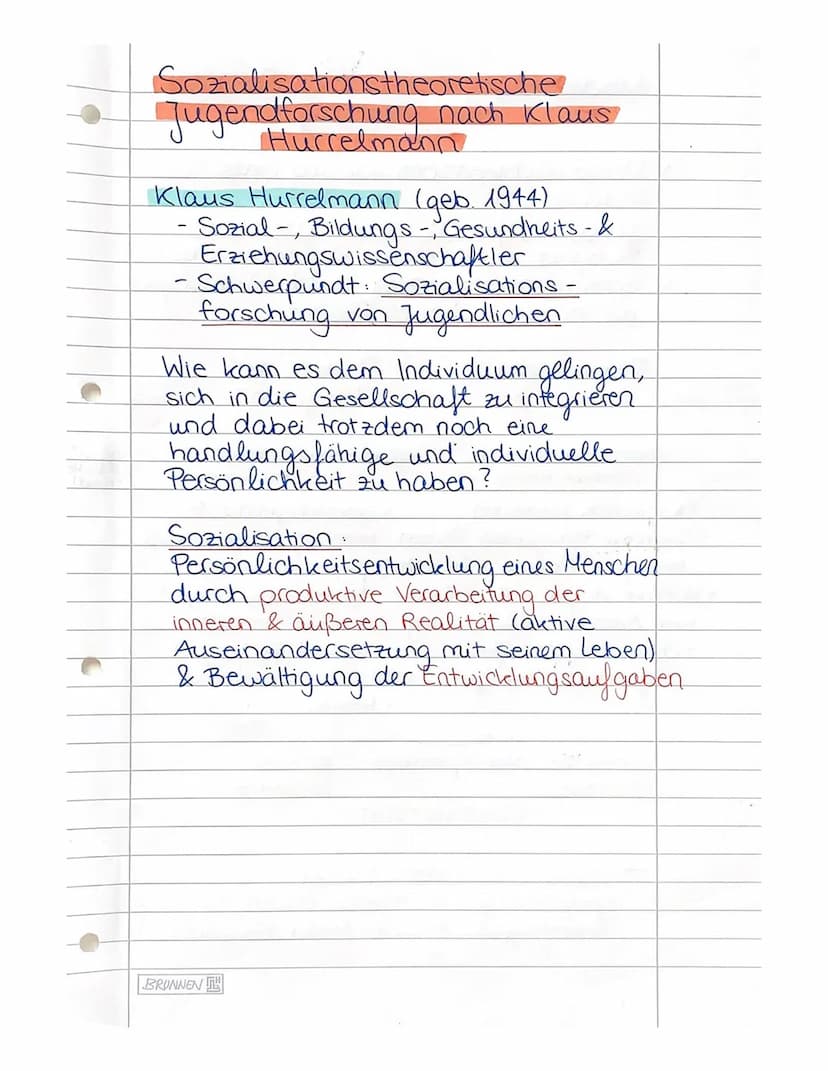 Sozialisationstheoretische
Jugendforschung nach Klaus
Hurrelmann
Klaus Hurrelmann (geb. 1944)
- Sozial-, Bildungs-, Gesundheits- &
Erziehungswissenschaftler
- Schwerpundt: Sozialisations-
forschung von Jugendlichen
Wie kann es dem Individuum gelingen,
sich in die Gesellschaft zu integrieren
und dabei trotzdem noch eine
handlungsfähige und individuelle
Persönlichkeit zu haben?
Sozialisation:
Persönlichkeitsentwicklung eines Menschen
durch produktive Verarbeitung der
inneren & äußeren Realität (aktive
Auseinandersetzung mit seinem Leben)
& Bewältigung der Entwicklungsaufgaben
BRUNNEN